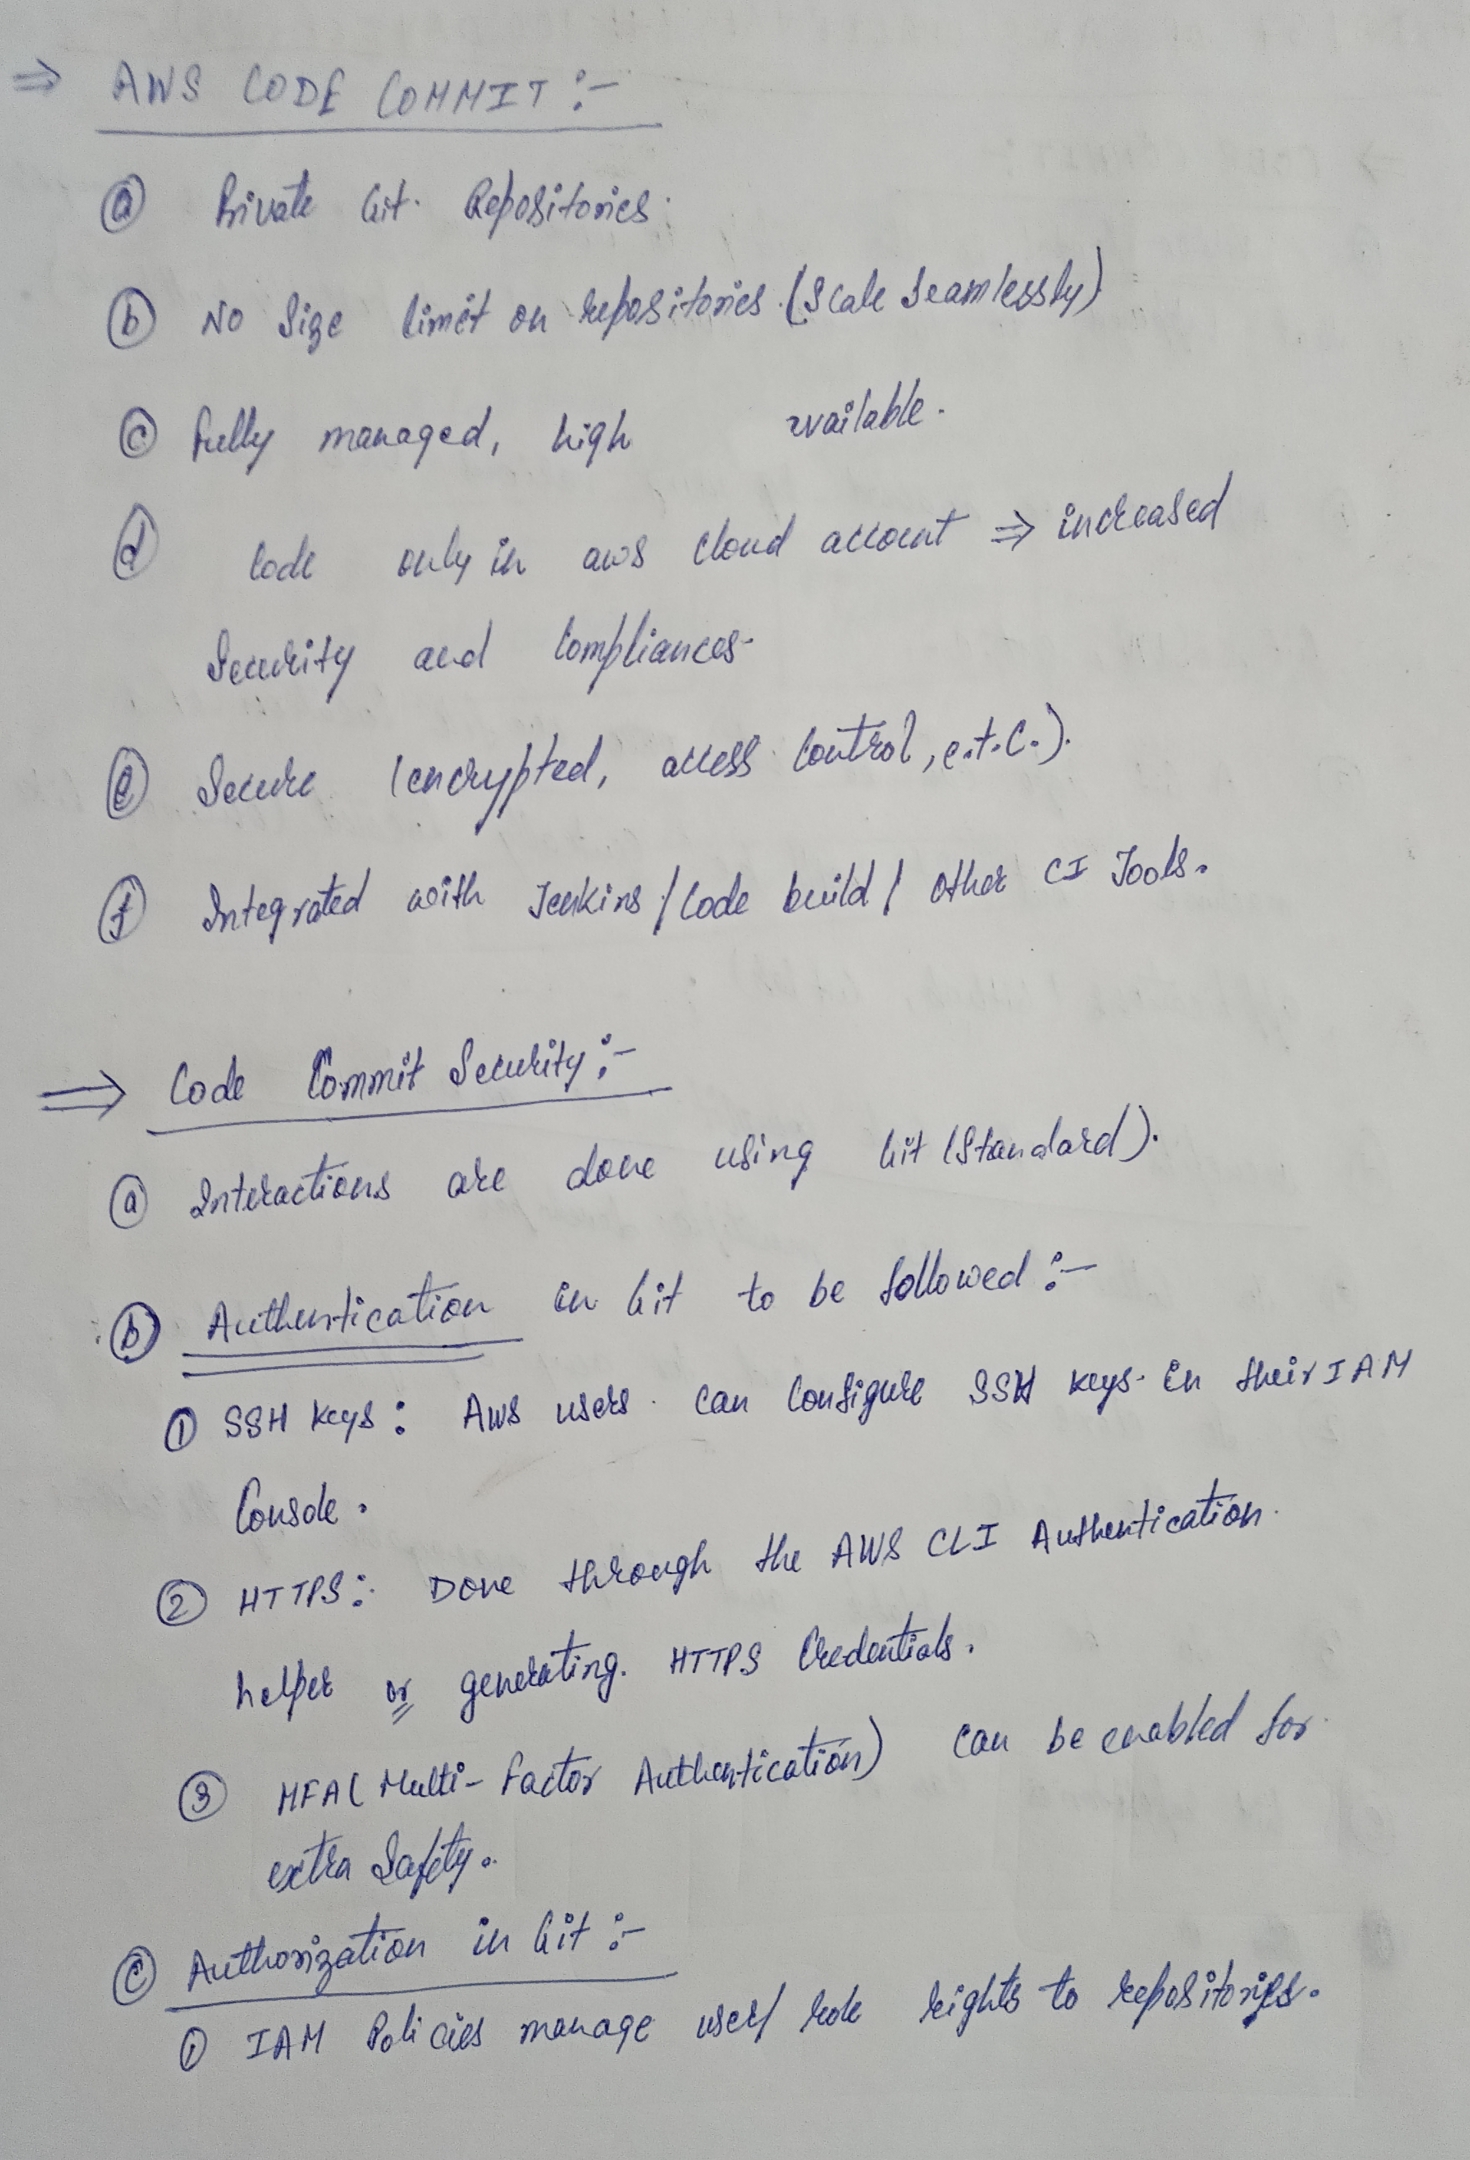 ⇒ AWS CODE COMMIT :-
ⓐ Private Git. Repositories.
ⓑ No Size limit on repositories. (Scale Seamlessly)
ⓒ fully managed, high available.
ⓓ Code only in aws cloud account ⇒ increased
Security and Compliances.
ⓔ Secure (encrypted, access control, e.t.c.).
ⓕ Integrated with Jenkins / Code build / other CI Tools.
⇒ Code Commit Security :-
ⓐ Interactions are done using Git (Standard).
ⓑ Authentication in Git to be followed :-
① SSH Keys : AWS users can Configure SSH keys in their IAM
Console.
② HTTPS : Done through the AWS CLI Authentication
helper or generating HTTPS Credentials.
③ MFA (Multi-factor Authentication) can be enabled for
extra Safety.
ⓒ Authorization in Git :-
① IAM Policies manage user/ role rights to repositories.